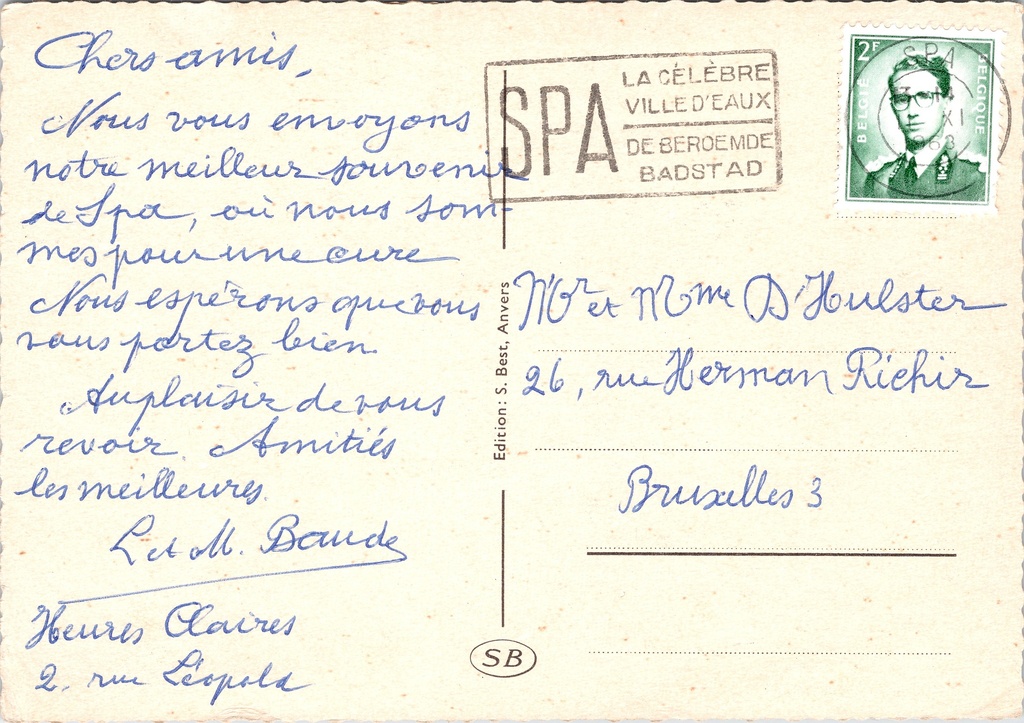 Chers amis,
Nous vous envoyons
notre meilleur souvenir
de Spa, où nous som-
mes pour une cure
Nous espérons que vous
vous portez bien.
Au plaisir de vous
revoir. Amitiés
les meilleures.
L et M. Baude
Heures Claires
2. rue Léopold
SPA
LA CÉLÈBRE
VILLE D'EAUX
DE BEROEMDE
BADSTAD
2F
BELGIE BELGIQUE
SPA
XI
63
Edition: S. Best, Anvers
SB
Mr et Mme D'Hulster
26, rue Herman Richir
Bruxelles 3